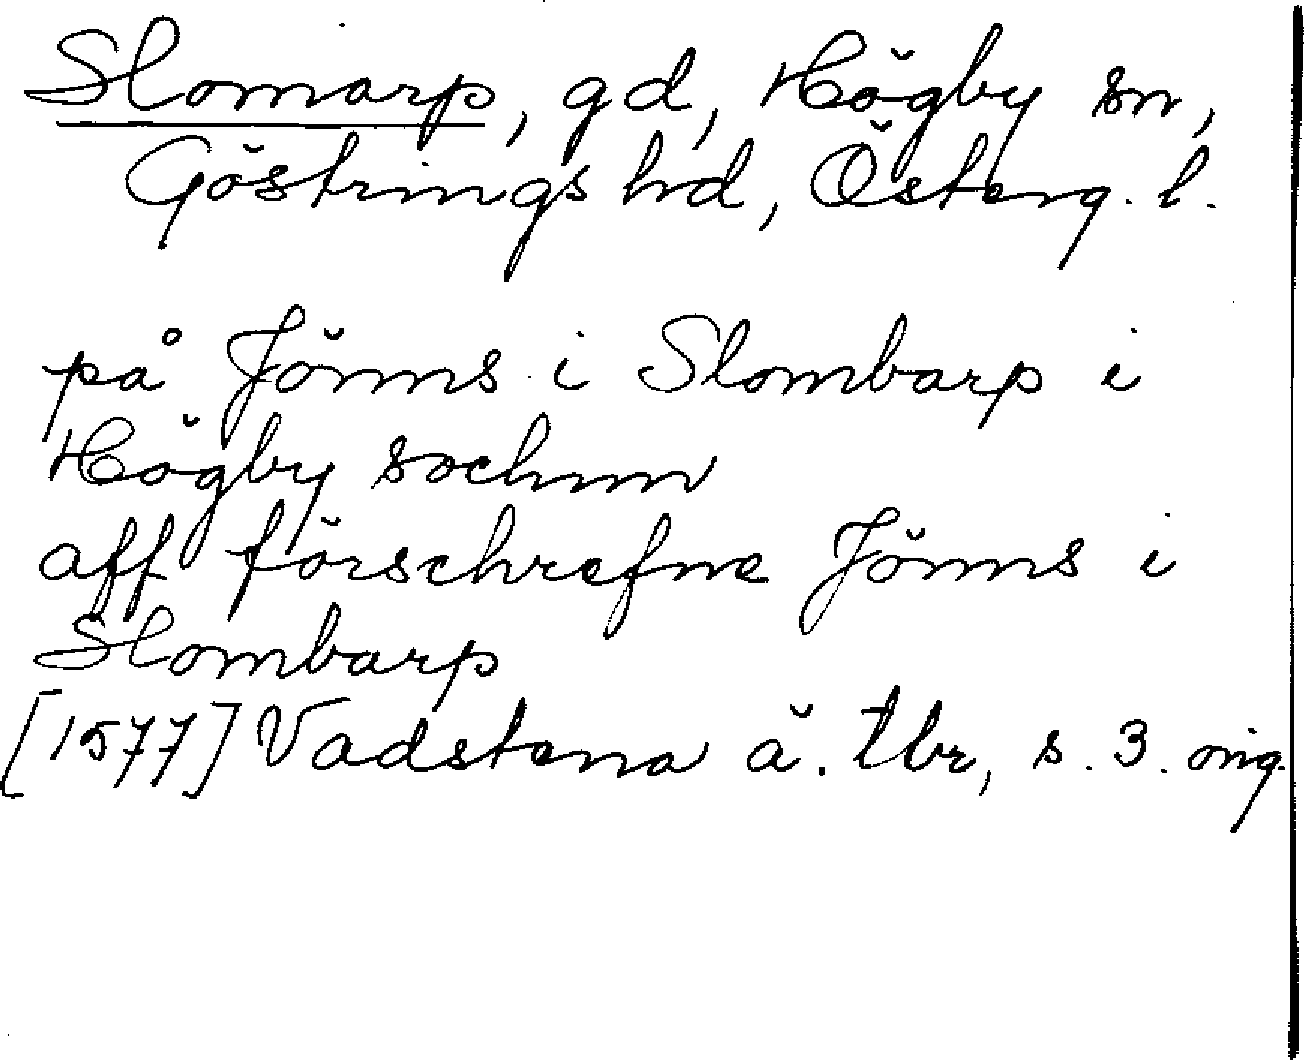 Slomarp, gd, Högby sn,
Göstrings hd, Österg. l.
på Jönns i Slombarp i
Högby sochnn
aff förschrefne Jönns i
Slombarp
[1577] Vadstena ä. tbr, s. 3. orig.